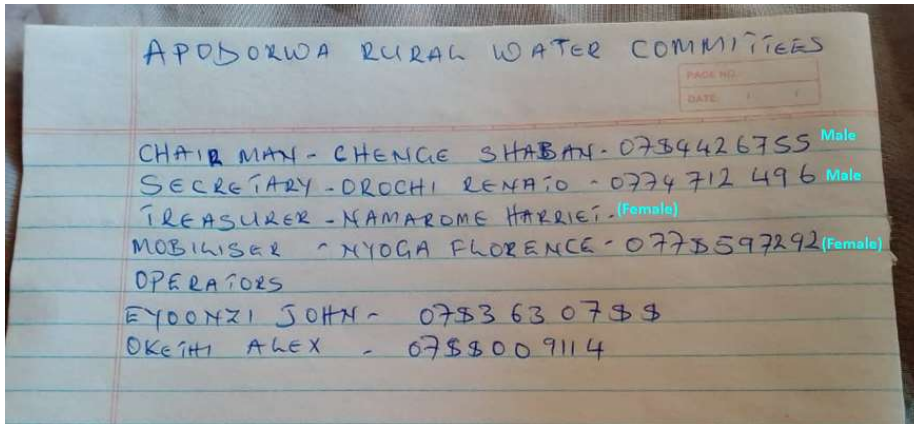 APODORWA RURAL WATER COMMITTEES
PAGE NO.:
DATE: / /
CHAIR MAN - CHENGE SHABAN - 0784426755 Male
SECRETARY - OROCHI RENATO - 0774 712 496 Male
TREASURER - NAMAROME HARRIET. (Female)
MOBILISER - NYOGA FLORENCE - 0778597292 (Female)
OPERATORS
EYOONZI JOHN - 0783 630 788
OKETHI ALEX - 0788009114